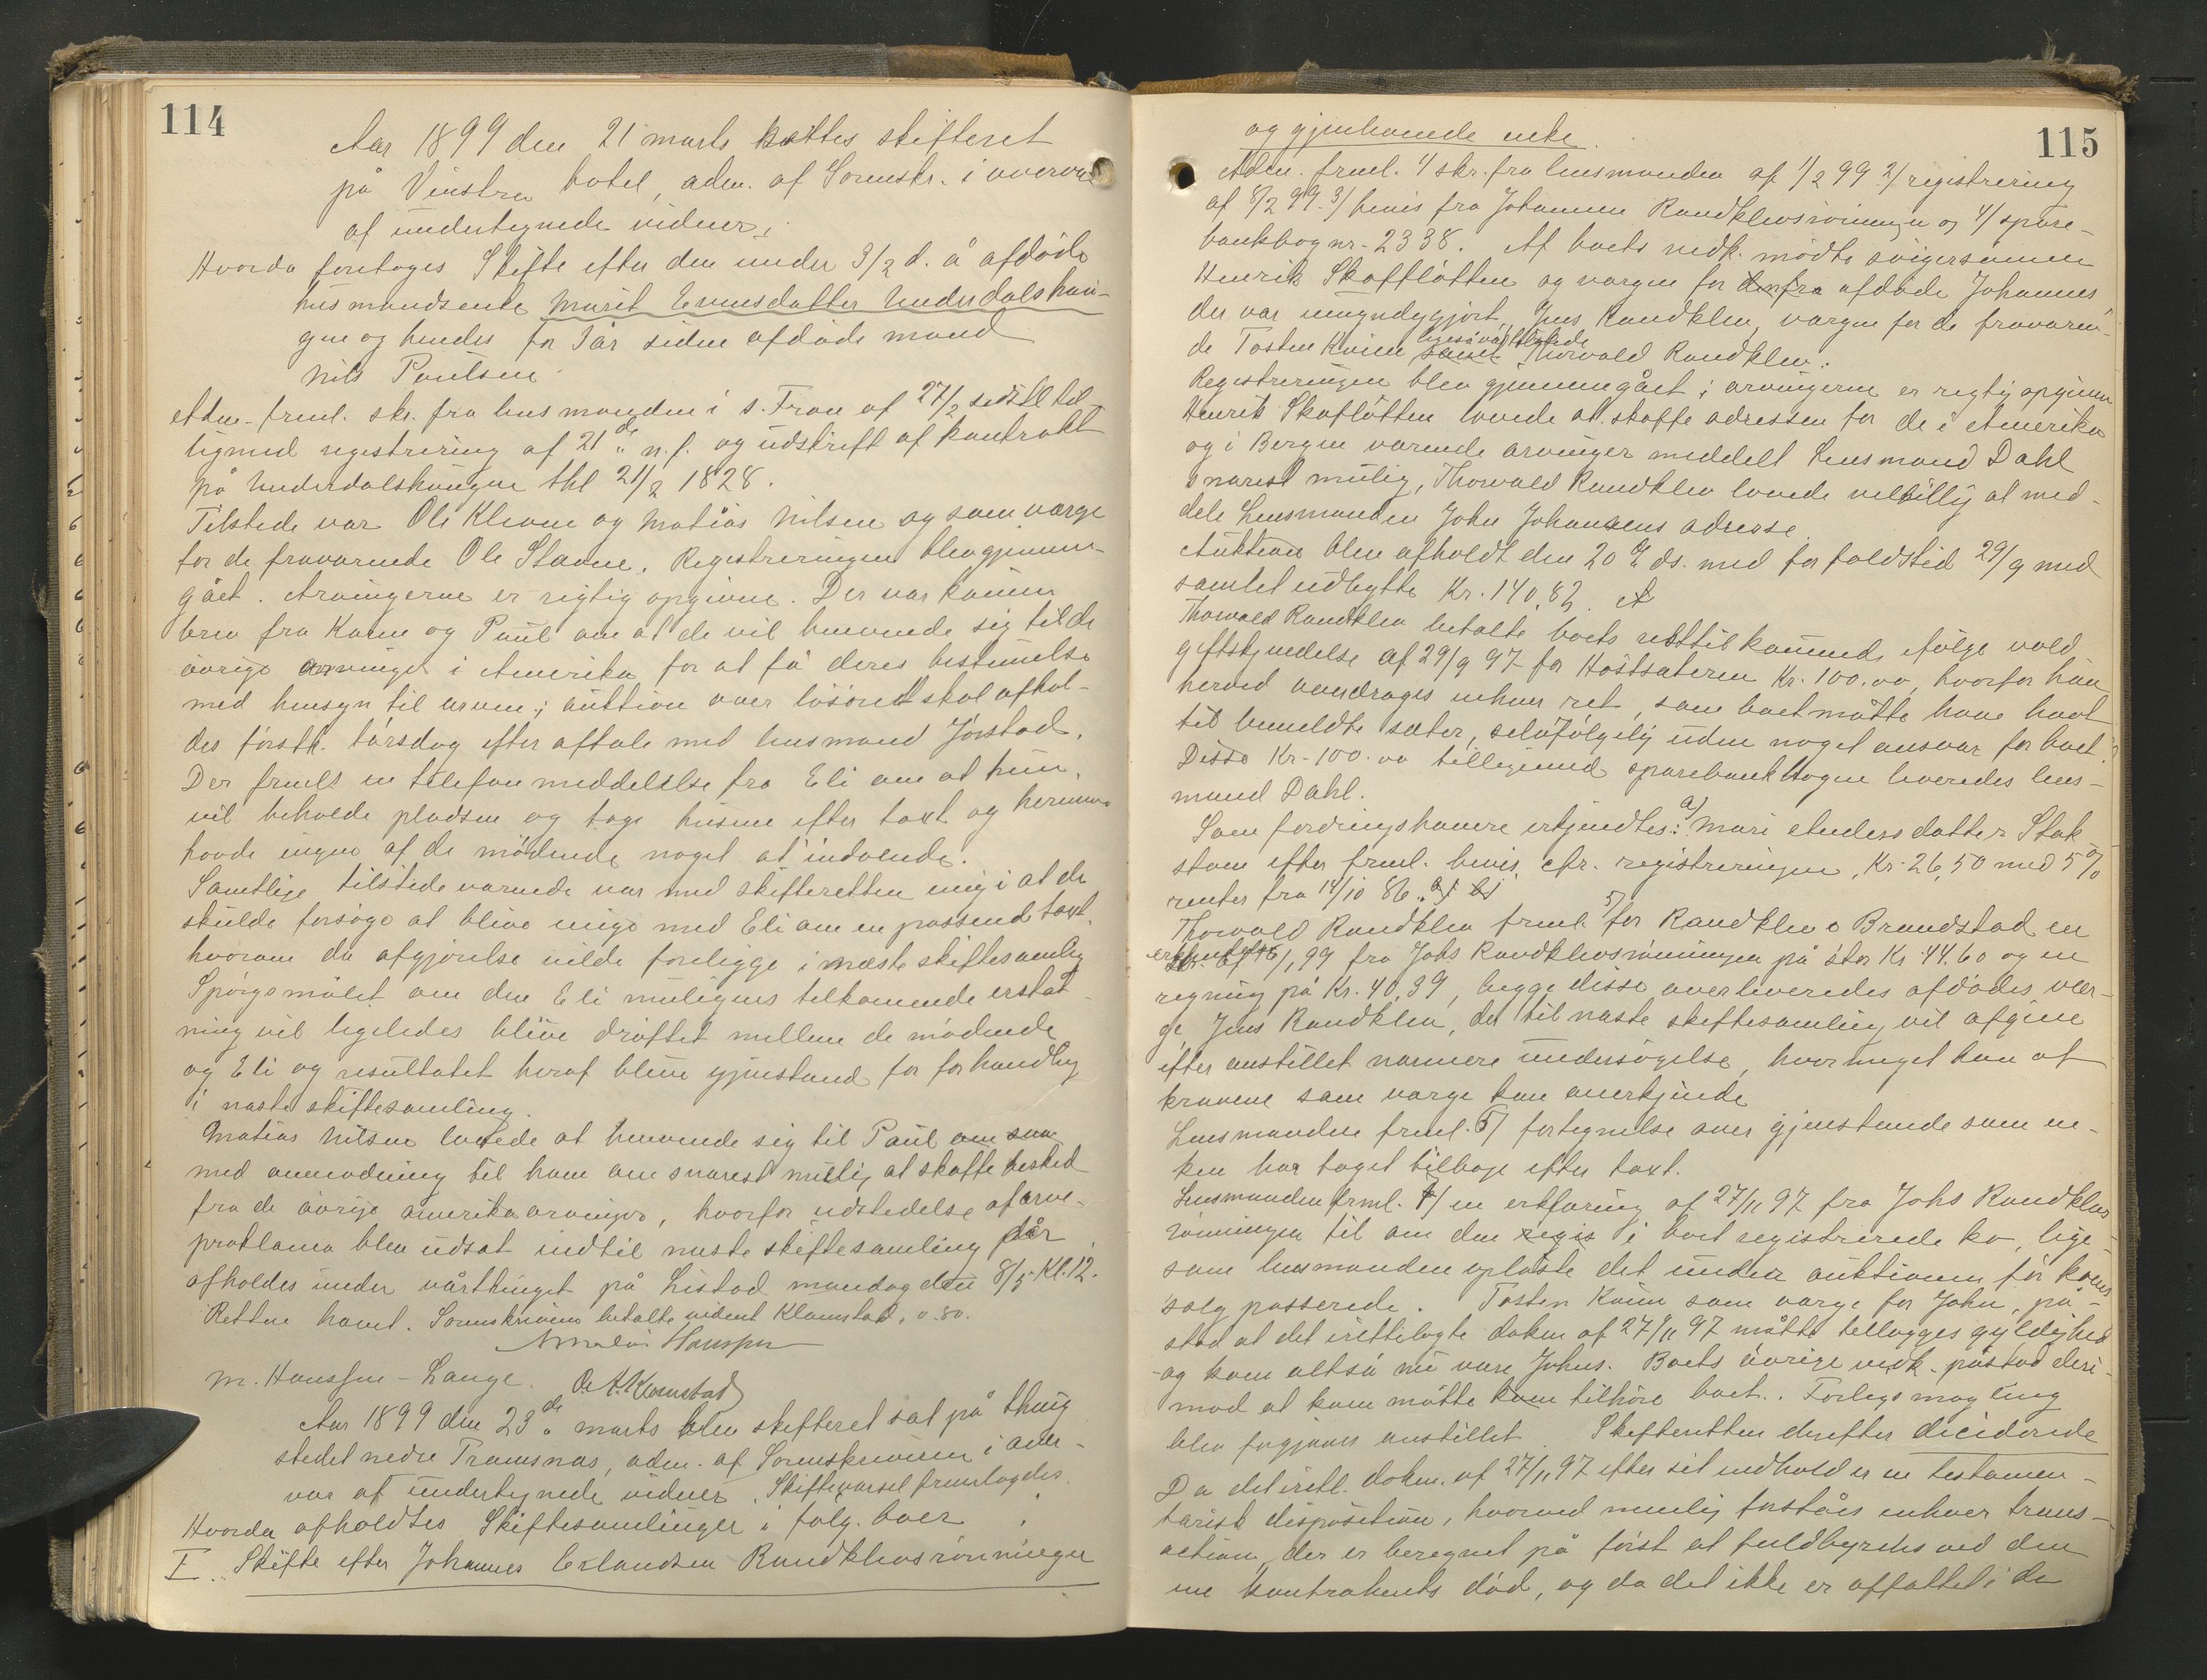 114
Aar 1899 den 21 marts sattes skifteret
på Vinstra hotel, adm. af Sorenskr. i overvær
af undertegnede vidner:
Hvorda foretoges Skifte efter den under 3/2 d. å afdøde
husmandsenke Marit Evensdatter Underdalshaun-
gen og hendes for år siden afdøde mand
Nils Paulsen
Adm. freml. skr. fra lensmanden i s. Fron af 27/2 sidstl til-
ligmed registrering af 21de n. f. og udskrift af kontrakt
på Underdalshaugen thl 21/2 1828.
Tilstede var Ole Klevene og Matias Nilsen og som værge
for de fraværende Ole Stavne. Registreringen blev gjennem-
gået. Arvingerne er rigtig opgivne. Der var kommet
brev fra Karen og Paul om at de vil henvende sig til de
øvrige arvinger i Amerika for at få deres bestemmelse
med hensyn til arven; auktion over løsøret skal afhol-
des førstk. tirsdag efter aftale med lensmand Jørstad.
Der fremls en telefonmeddelelse fra Eli om at hun
vil beholde pladsen og tage husene efter taxt og herimod
havde ingen af de mødende noget at indvende.
Samtlige tilstedeværende var med skifteretten enig i at de
skulde forsøge at blive enige med Eli om en passende taxt,
hvorom da afgjørelse vilde foreligge i næste skiftesamling
Spørgsmålet om den Eli muligens tilkommende erstat-
ning vil ligeledes blive drøftet mellem de mødende
og Eli og resultatet heraf blive gjenstand for forhandling
i næste skiftesamling.
Matias Nilsen lovede at henvende sig til Paul om sna
med anmodning til ham om snarest mulig at skaffe besked
fra de øvrige amerikaarvinger, hvorfor udstedelse af arve-
proklama blev udsat indtil næste skiftesamling der
afholdes under vårthinget på Listad mandag den 8/5 Kl. 12.
Retten hævet. Sorenskriveren betalte vidnet Klomstad, 0.80.
M. Hanssen-Lange. O. K. Klomstad
Aar 1899 den 23de marts blev skifteret sat på thing
stedet nedre Tramsnæs, adm. af Sorenskriveren i over-
vær af undertegnede vidner. Skiftevarsel fremlagdes.
Hvorda afholdtes Skiftesamlinger i følg. boer:
I. Skifte efter Johannes Erlandsen Randklevsrønningen
115
og gjenlevende enke.
Adm. freml. 1 skr. fra lensmanden af 1/2 99 2/ registrering
af 8/2 99. 3/ bevis fra Johannes Randklevsrønningen og 4/ spare-
bankbog nr. 2338. Af boets vedk. mødte svigersønnen
Henrik Skaftløtten og værgen for den fra afdøde Johannes
der var umyndiggjort, Jens Randklev, værgen for de fraværen-
de Tosten Kvien samt ligeså var tilstede Thorvald Randklev.
Registreringen blev gjennemgået; arvingerne er rigtig opgivne
Henrik Skaftløtten lovede at skaffe adressen for de i Amerika
og i Bergen værende arvinger meddelt Lensmand Dahl
snarest mulig, Thorvald Randklev lovede velvillig at med-
dele Lensmanden John Johansens adresse.
Auktion blev afholdt den 20de ds. med forfaldstid 29/9 med
samlet udbytte Kr. 140,82. A
Thorvald Randklev betalte boets resttilkommende ifølge vold
giftskjendelse af 29/9 97 for Høstsæteren Kr. 100.00, hvorfor han
herved overdrages enhver ret, som boet måtte have havt
til bemeldte sæter, selvfølgelig uden noget ansvar for boet.
Disse Kr. 100.00 tilligemed sparebankbogen leveredes lens-
mand Dahl.
Som fordringshavere erkjendtes: a/ Mari Andersdatter Stak
stuen efter freml. bevis, cfr. registreringen, Kr. 26,50 med 5%
renter fra 14/10 86. a/ b/
Thorvald Randklev freml. 5/ for Randklev o Brandstad en
erkjendelse Skr. af 16/1, 99 fra Johs Randklevsrønningen på stor Kr 44.60 og en
regning på Kr. 40,39, begge disse overleveredes afdødes vær-
ge Jens Randklev, der til næste skiftesamling vil afgive
efter anstillet nærmere undersøgelse, hvor meget han af
kravene som værge kan anerkjende
Lensmanden freml. 6/ fortegnelse over gjenstande som en-
ken har taget tilbage efter taxt.
Lensmanden freml. 7/ en erklæring af 27/11 97 fra Johs Randklevs
rønningen til om den regis i boet registrerede ko, lige-
som lensmanden oplæste det under auktionen før koens
salg passerede. Tosten Kvien som værge for John, på-
stod at det irettelagte dokm af 27/11 97 måtte tillægges gyldighed
og koen altså nu være Johns. Boets øvrige vedk. påstod deri-
mod at koen måtte koen tilhøre boet. Forligsmægling
blev forgjæves anstillet. Skifteretten derefter deciderede
Da det iretl. dokm. af 27/11 97 efter sit indhold er en testamen-
tarisk disposition, hvorved nemlig forståes enhver trans-
action, der er beregnet på først at fuldbyrdes ved den
ene kontrahents død, og da det ikke er affattet i de